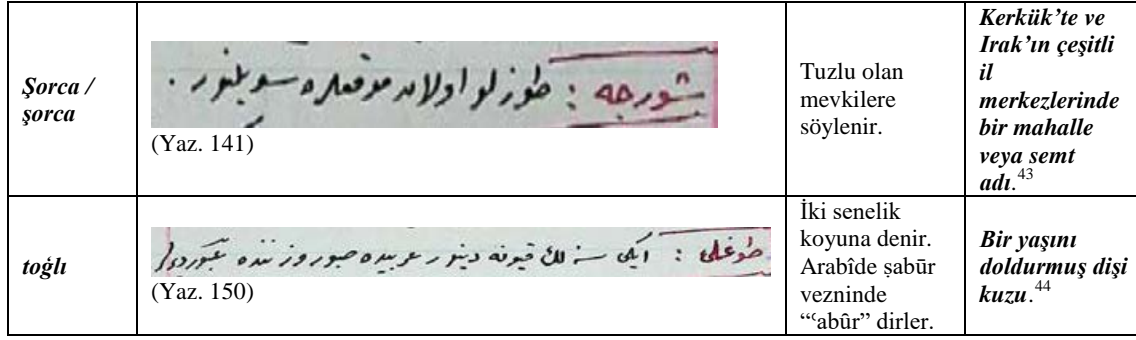 Şorca /
şorca
شورجه : طوزلو اولان موقعلره سویلنور .
(Yaz. 141)
Tuzlu olan
mevkilere
söylenir.
Kerkük’te ve
Irak’ın çeşitli
il
merkezlerinde
bir mahalle
veya semt
adı.43
toġlı
طوغلی : ایکی سنه لك قیونه دینور عربیده صبور وزننده عبور دیرلر
(Yaz. 150)
İki senelik
koyuna denir.
Arabîde ṣabūr
vezninde
“ʿabûr” dirler.
Bir yaşını
doldurmuş dişi
kuzu.44